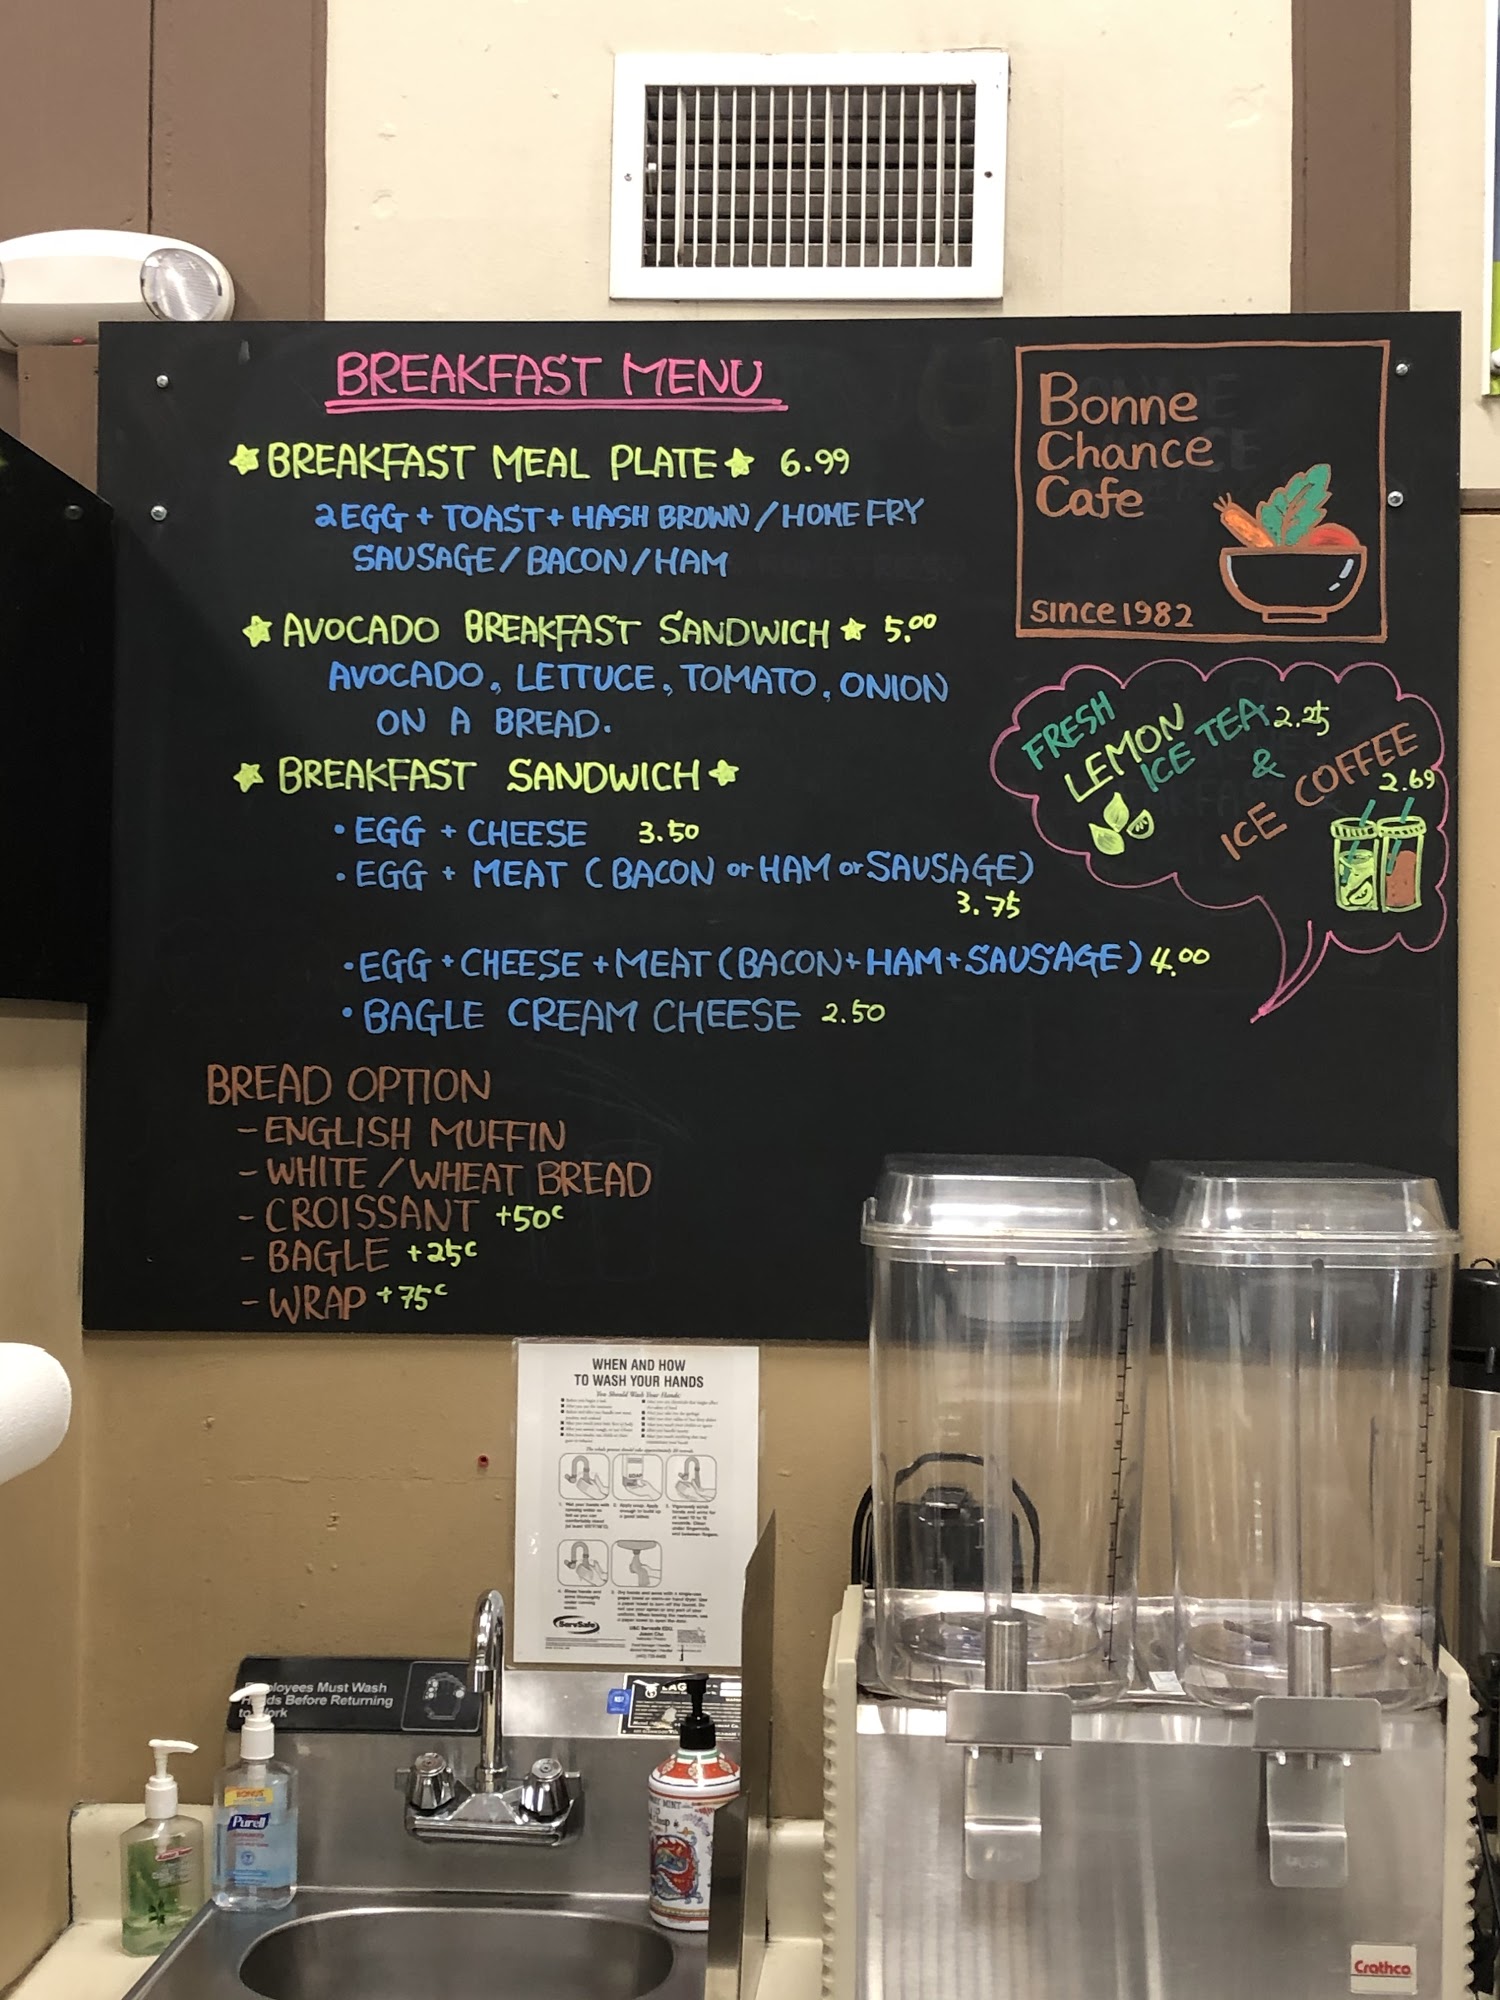 BREAKFAST MENU
BREAKFAST MEAL PLATE 6.99
2 EGG + TOAST + HASH BROWN / HOME FRY
SAUSAGE / BACON / HAM
AVOCADO BREAKFAST SANDWICH 5.00
AVOCADO, LETTUCE, TOMATO, ONION
ON A BREAD.
BREAKFAST SANDWICH
• EGG + CHEESE 3.50
• EGG + MEAT (BACON or HAM or SAUSAGE)
3.75
• EGG + CHEESE + MEAT (BACON + HAM + SAUSAGE) 4.00
• BAGLE CREAM CHEESE 2.50
BREAD OPTION
- ENGLISH MUFFIN
- WHITE / WHEAT BREAD
- CROISSANT +50c
- BAGLE +25c
- WRAP +75c
Bonne
Chance
Cafe
Since 1982
FRESH
LEMON
ICE TEA 2.25
&
ICE COFFEE
2.69
WHEN AND HOW
TO WASH YOUR HANDS
You Should Wash Your Hands:
ServSafe
Employees Must Wash
Hands Before Returning
to Work
Purell
Crathco